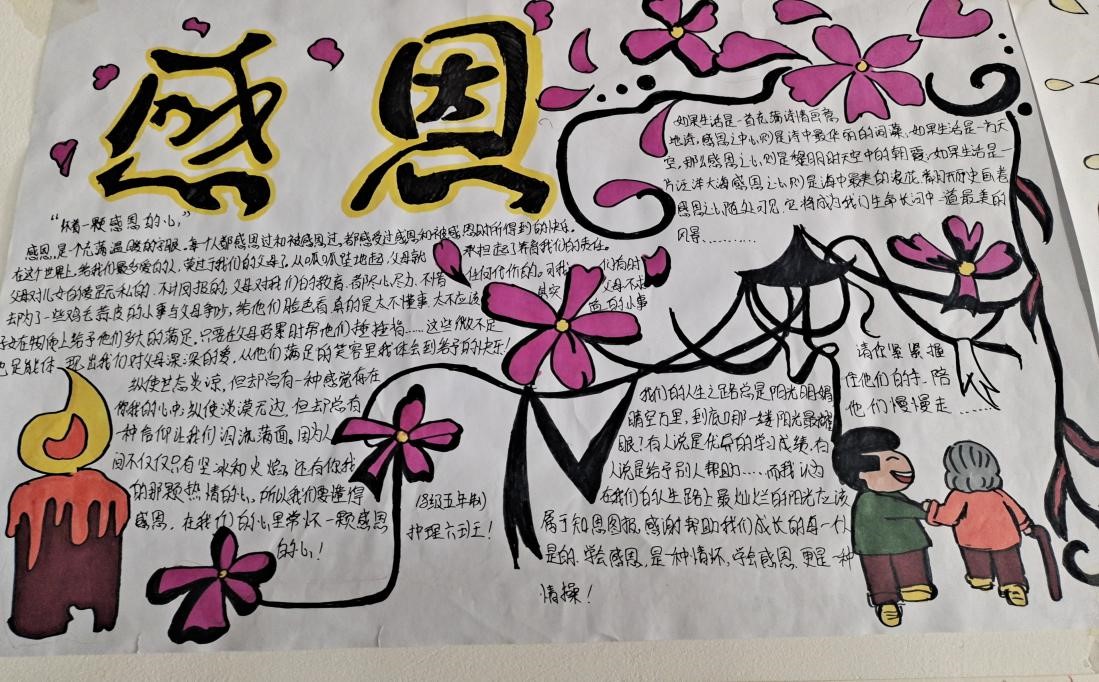 感恩
如果生活是一首充满诗情画意
地诗,感恩之心则是诗中最华丽的词幕,如果生活是一方天
空,那么感恩之心则是黎明时天空中的朝霞;如果生活是一
方汪洋大海感恩之心则是海中最美的浪花,翻开历史画卷
感恩之心随处可见,它将成为我们生命长河中一道最美的
风景………
“怀着一颗感恩的心”
感恩,是个充满温暖的字眼。每个人都感恩过和被感恩过,都感受过感恩和被感恩时所得到的快乐。
在这个世界上,给我们最多爱的人,莫过于我们的父母了,从呱呱坠地起,父母就 承担起了养育我们的责任。
父母对儿女的爱是无私的,不计回报的,父母对我们的教育,都尽心尽力,不惜 任何代价的。可我 们有时
去为了一些鸡毛蒜皮的小事与父母争吵,给他们脸色看,真的是太不懂事,太不应该 其实 父母不求
在物质上给予他们多大的满足,只要在父母劳累时帮他们捶捶背……这些微不足 道的小事
也足能体 现出我们对父母深深的爱,从他们满足的笑容里我体会到给予的快乐!
纵使世态炎凉,但却总有一种感觉存在
你我的心中;纵使淡漠无边,但却总有
一种信仰让我们泪流满面。因为人
间不仅仅只有坚冰和火焰,还有你我
的那颗热情的心,所以我们要懂得
感恩,在我们的心里常怀一颗感恩
的心!
18级五年制
护理六班!
我们的人生之路总是阳光明媚
晴空万里,到底哪一缕阳光最耀
眼?有人说是优异的学习成绩,有
人说是给予别人帮助……而我认为
在我们的人生路上最灿烂的阳光应该
属于知恩图报,感谢帮助我们成长的每一位
是的,学会感恩,是一种情怀,学会感恩,更是一种
情操!
请你紧紧握
住他们的手,陪
他们慢慢走……